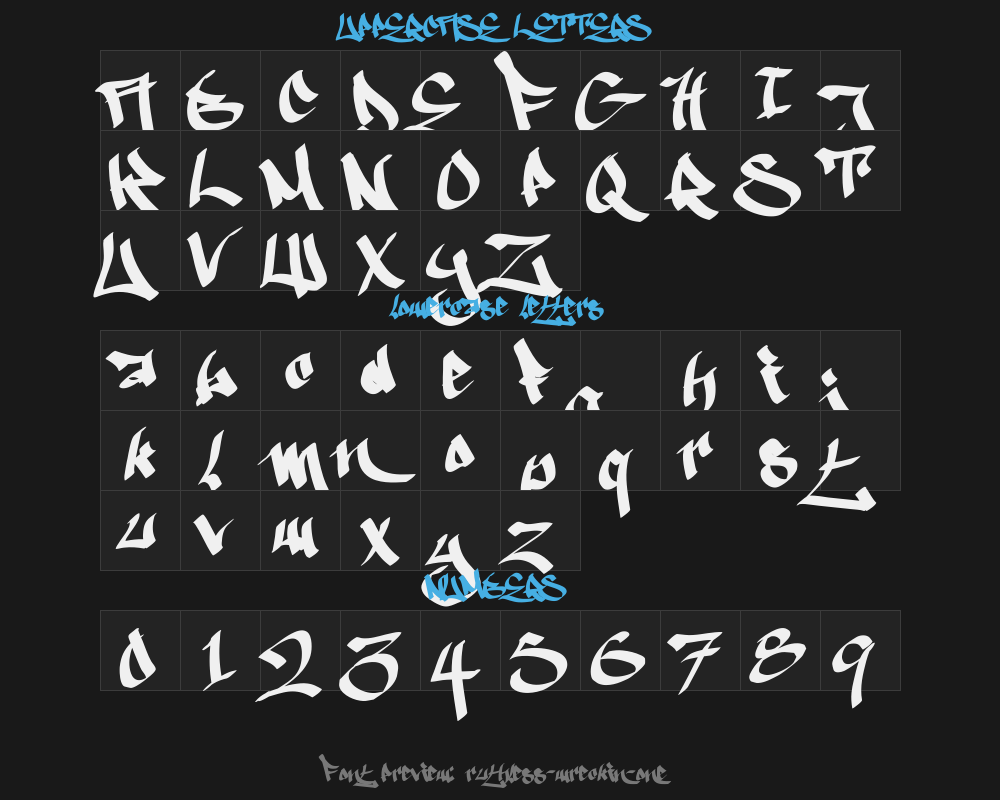 UPPERCASE LETTERS
A B C D E F G H I J
K L M N O P Q R S T
U V W X Y Z
lowercase letters
a b c d e f g h i j
k l m n o p q r s t
u v w x y z
NUMBERS
0 1 2 3 4 5 6 7 8 9
Font preview: ruthless-wreckin-one